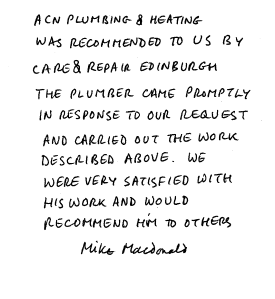 ACN PLUMBING & HEATING
WAS RECOMMENDED TO US BY
CARE & REPAIR EDINBURGH
THE PLUMBER CAME PROMPTLY
IN RESPONSE TO OUR REQUEST
AND CARRIED OUT THE WORK
DESCRIBED ABOVE. WE
WERE VERY SATISFIED WITH
HIS WORK AND WOULD
RECOMMEND HIM TO OTHERS
Mike Macdonald